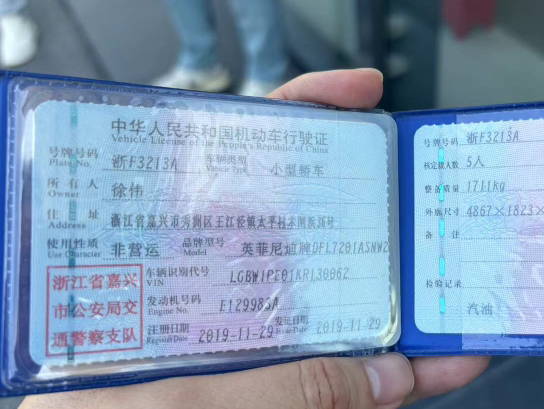 中华人民共和国机动车行驶证
Vehicle License of the People's Republic of China
号牌号码 浙F3213A 车辆类型 小型轿车
Plate No. Vehicle Type
所有人 徐伟
Owner
住址 浙江省嘉兴市秀洲区王江泾镇太平村
Address
使用性质 非营运 品牌型号 英菲尼迪牌DFL7201ASNW2
Use Character Model
浙江省嘉兴
市公安局交
通警察支队
车辆识别代号 LGBW1PE01KR130062
VIN
发动机号码 E129983A
Engine No.
注册日期 2019-11-29 发证日期 2019-11-29
Register Date Issue Date
号牌号码 浙F3213A
核定载人数 5人
整备质量 1711kg
外廓尺寸 4867×1823×
备注
检验记录
汽油